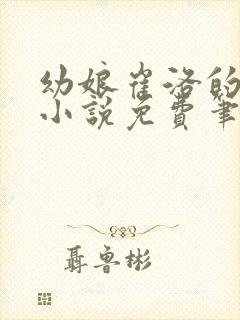 幼娘崔洛的
小说免费笔
聂鲁彬